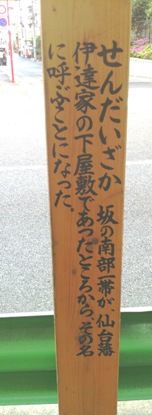 せんだいざか 坂の南部一帯が、仙台藩
伊達家の下屋敷であつたところから、その名
に呼ぶことになった。